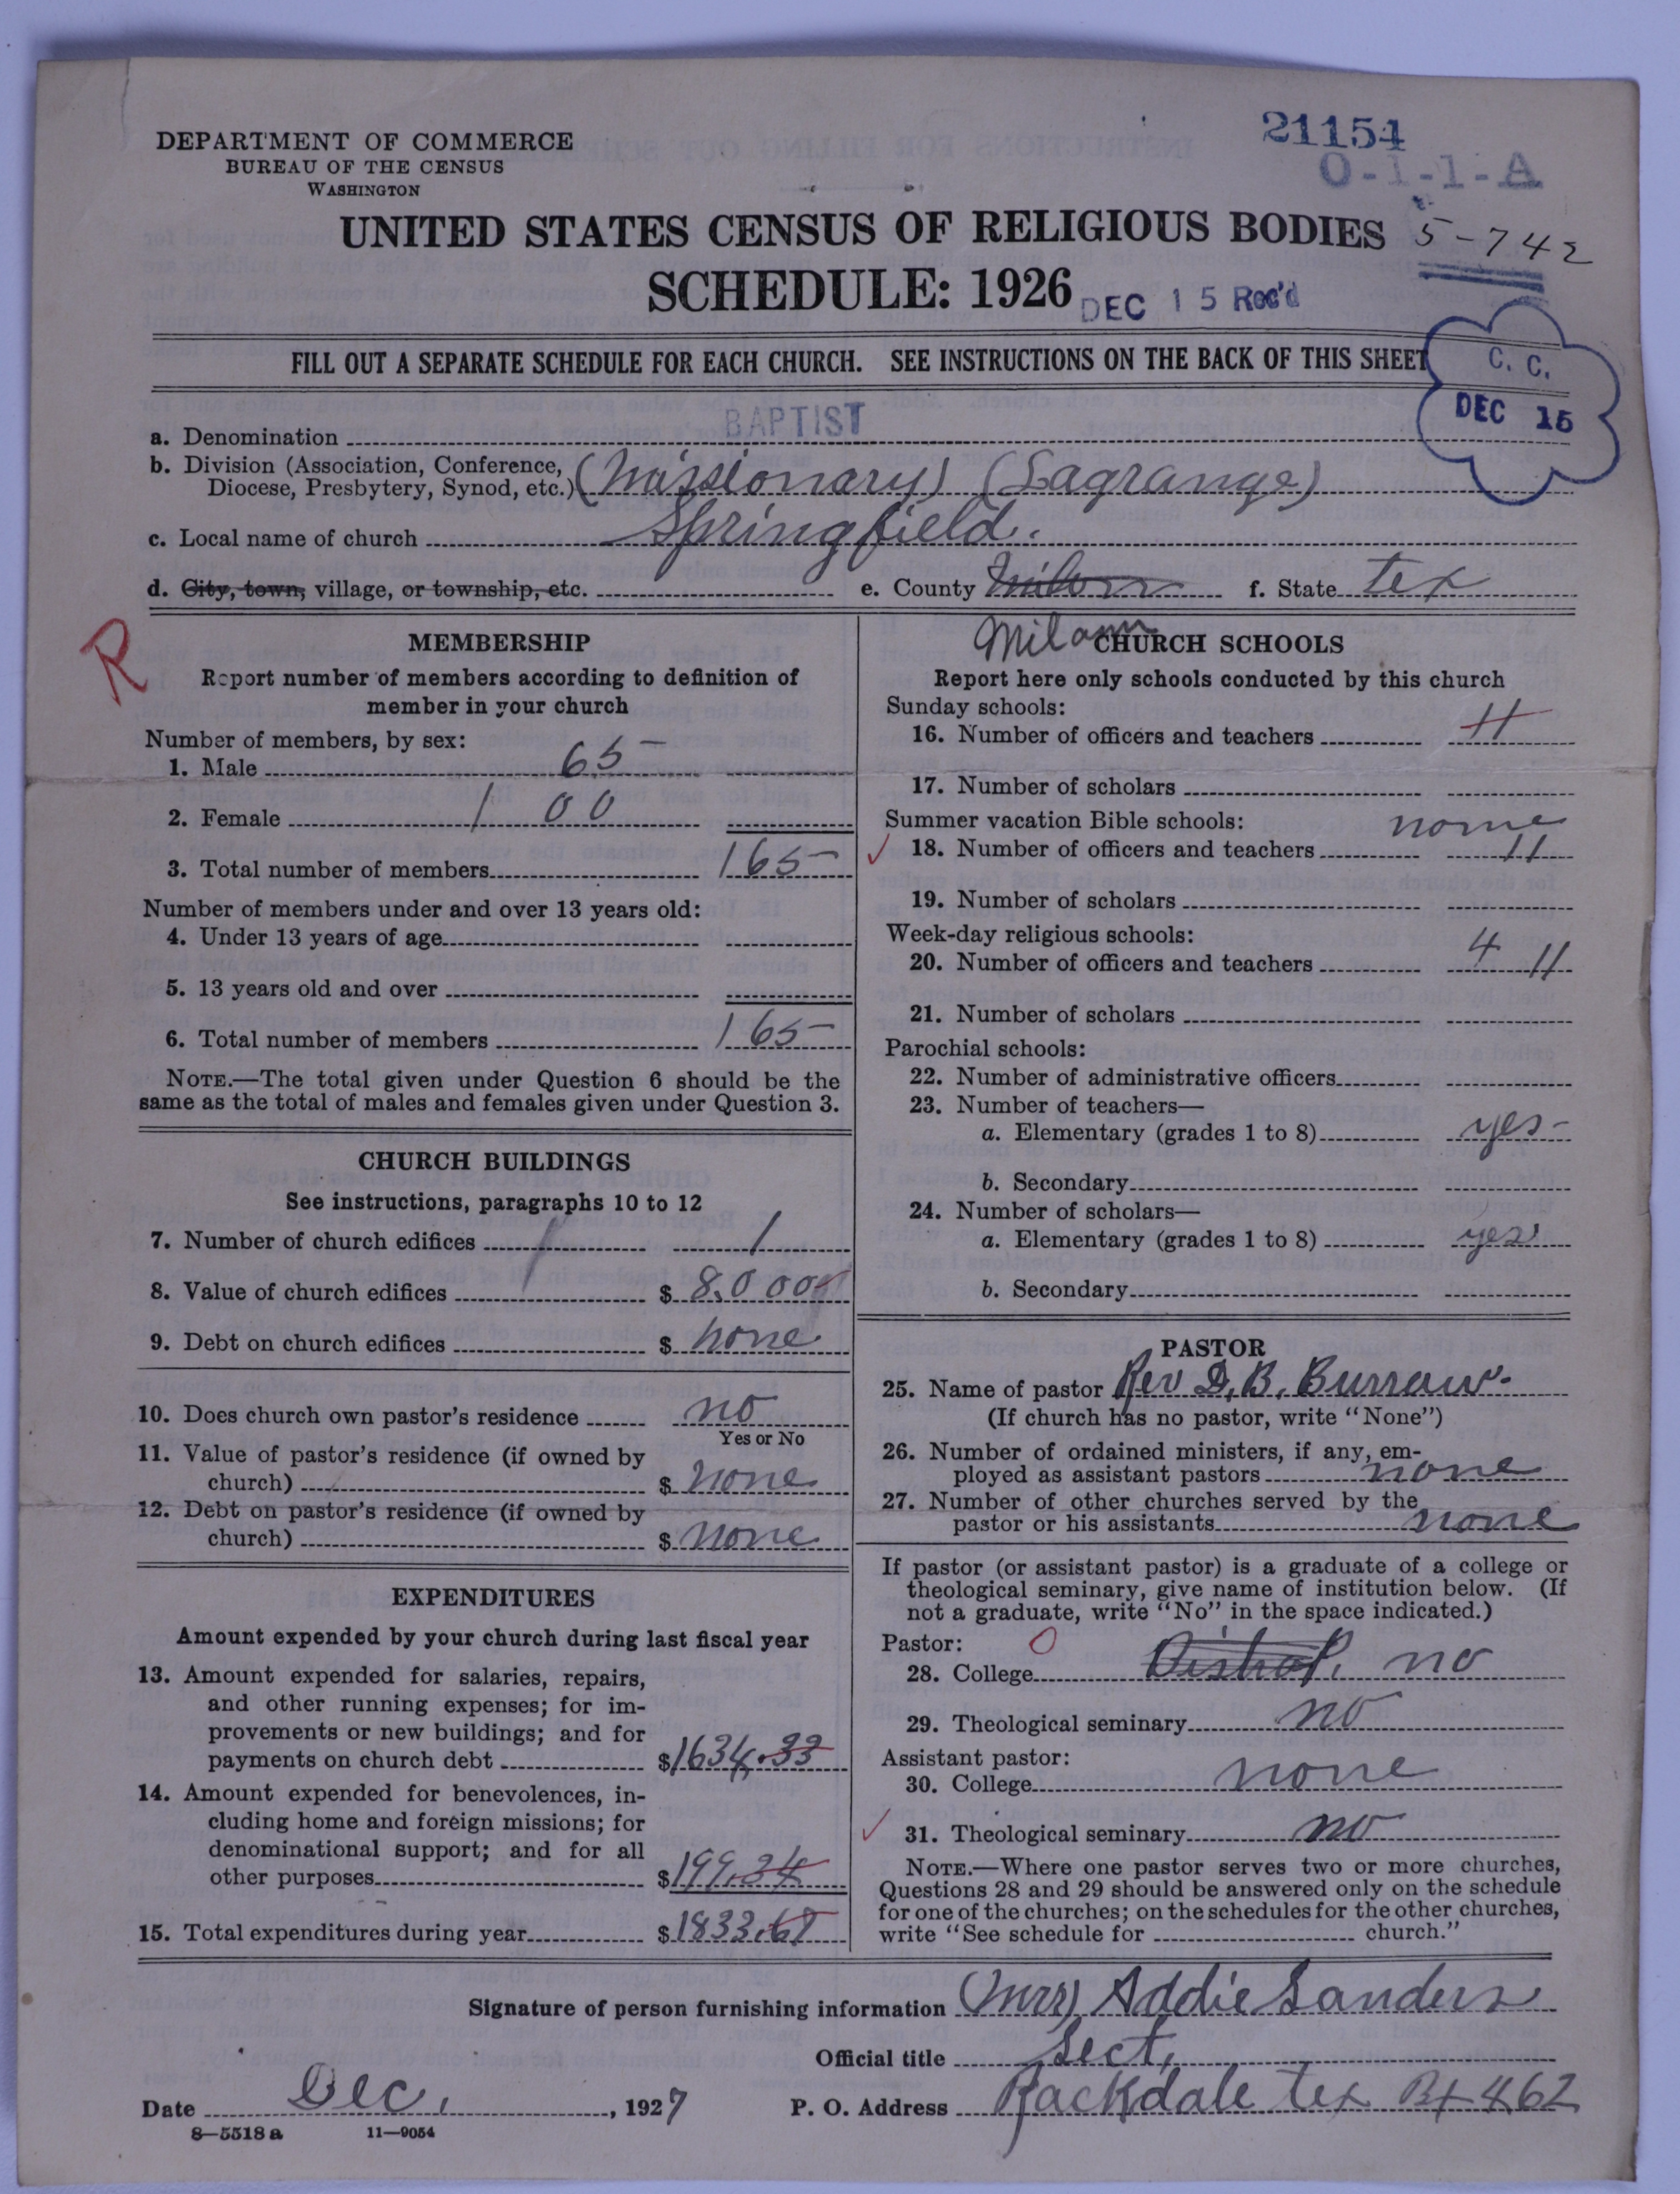 21154
DEPARTMENT OF COMMERCE
BUREAU OF THE CENSUS
WASHINGTON
O-1-1-A
UNITED STATES CENSUS OF RELIGIOUS BODIES
5-742
SCHEDULE: 1926
DEC 15 Rec'd
FILL OUT A SEPARATE SCHEDULE FOR EACH CHURCH. SEE INSTRUCTIONS ON THE BACK OF THIS SHEET
C. C.
DEC 15
a. Denomination BAPTIST
b. Division (Association, Conference, Diocese, Presbytery, Synod, etc.) (Missionary) (Lagrange)
c. Local name of church Springfield.
d. City, town, village, or township, etc. e. County Milam f. State tex
R
MEMBERSHIP
Report number of members according to definition of
member in your church
Number of members, by sex:
1. Male 65
2. Female 100
3. Total number of members 165
Number of members under and over 13 years old:
4. Under 13 years of age
5. 13 years old and over
6. Total number of members 165
NOTE.—The total given under Question 6 should be the
same as the total of males and females given under Question 3.
CHURCH BUILDINGS
See instructions, paragraphs 10 to 12
7. Number of church edifices 1
8. Value of church edifices $ 8,000
9. Debt on church edifices $ none
10. Does church own pastor's residence no
Yes or No
11. Value of pastor's residence (if owned by
church) $ none
12. Debt on pastor's residence (if owned by
church) $ none
EXPENDITURES
Amount expended by your church during last fiscal year
13. Amount expended for salaries, repairs,
and other running expenses; for im-
provements or new buildings; and for
payments on church debt $1634.33
14. Amount expended for benevolences, in-
cluding home and foreign missions; for
denominational support; and for all
other purposes $199.34
15. Total expenditures during year $1833.67
CHURCH SCHOOLS
Report here only schools conducted by this church
Sunday schools:
16. Number of officers and teachers 11
17. Number of scholars
Summer vacation Bible schools: none
18. Number of officers and teachers 11
19. Number of scholars
Week-day religious schools: 4
20. Number of officers and teachers 11
21. Number of scholars
Parochial schools:
22. Number of administrative officers
23. Number of teachers—
a. Elementary (grades 1 to 8) yes
b. Secondary
24. Number of scholars—
a. Elementary (grades 1 to 8) yes
b. Secondary
PASTOR
25. Name of pastor Rev D, B, Burraw.
(If church has no pastor, write "None")
26. Number of ordained ministers, if any, em-
ployed as assistant pastors none
27. Number of other churches served by the
pastor or his assistants none
If pastor (or assistant pastor) is a graduate of a college or
theological seminary, give name of institution below. (If
not a graduate, write "No" in the space indicated.)
Pastor: 0
28. College Bishop, no
29. Theological seminary no
Assistant pastor:
30. College none
31. Theological seminary no
NOTE.—Where one pastor serves two or more churches,
Questions 28 and 29 should be answered only on the schedule
for one of the churches; on the schedules for the other churches,
write "See schedule for church."
Signature of person furnishing information (Mrs) Addie Sanders
Official title Sect,
Date Dec, , 1927 P. O. Address Rackdale tex Bx 462
8—5518 a 11—9054